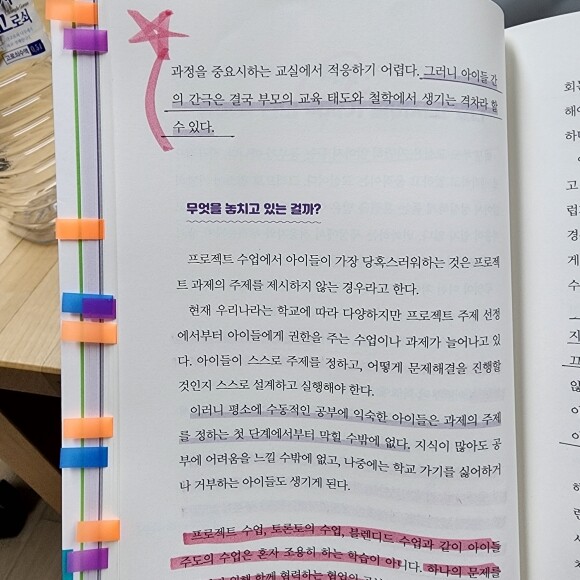 로쇠
과정을 중요시하는 교실에서 적응하기 어렵다. 그러니 아이들 간
의 간극은 결국 부모의 교육 태도와 철학에서 생기는 격차라 할
수 있다.
무엇을 놓치고 있는 걸까?
프로젝트 수업에서 아이들이 가장 당혹스러워하는 것은 프로젝
트 과제의 주제를 제시하지 않는 경우라고 한다.
현재 우리나라는 학교에 따라 다양하지만 프로젝트 주제 선정
에서부터 아이들에게 권한을 주는 수업이나 과제가 늘어나고 있
다. 아이들이 스스로 주제를 정하고, 어떻게 문제해결을 진행할
것인지 스스로 설계하고 실행해야 한다.
이러니 평소에 수동적인 공부에 익숙한 아이들은 과제의 주제
를 정하는 첫 단계에서부터 막힐 수밖에 없다. 지식이 많아도 공
부에 어려움을 느낄 수밖에 없고, 나중에는 학교 가기를 싫어하거
나 거부하는 아이들도 생기게 된다.
프로젝트 수업, 토론토의 수업, 블렌디드 수업과 같이 아이들
주도의 수업은 혼자 조용히 하는 학습이 아니다. 하나의 문제를
함께 협력하는